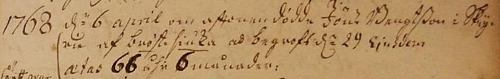 1768 d: 6 april om aftonen dödde Jöns Bengtsson i
en af bröstsiuka och begrofs d: 29 Ejusdem
ætas 66 åhr 6 månader: